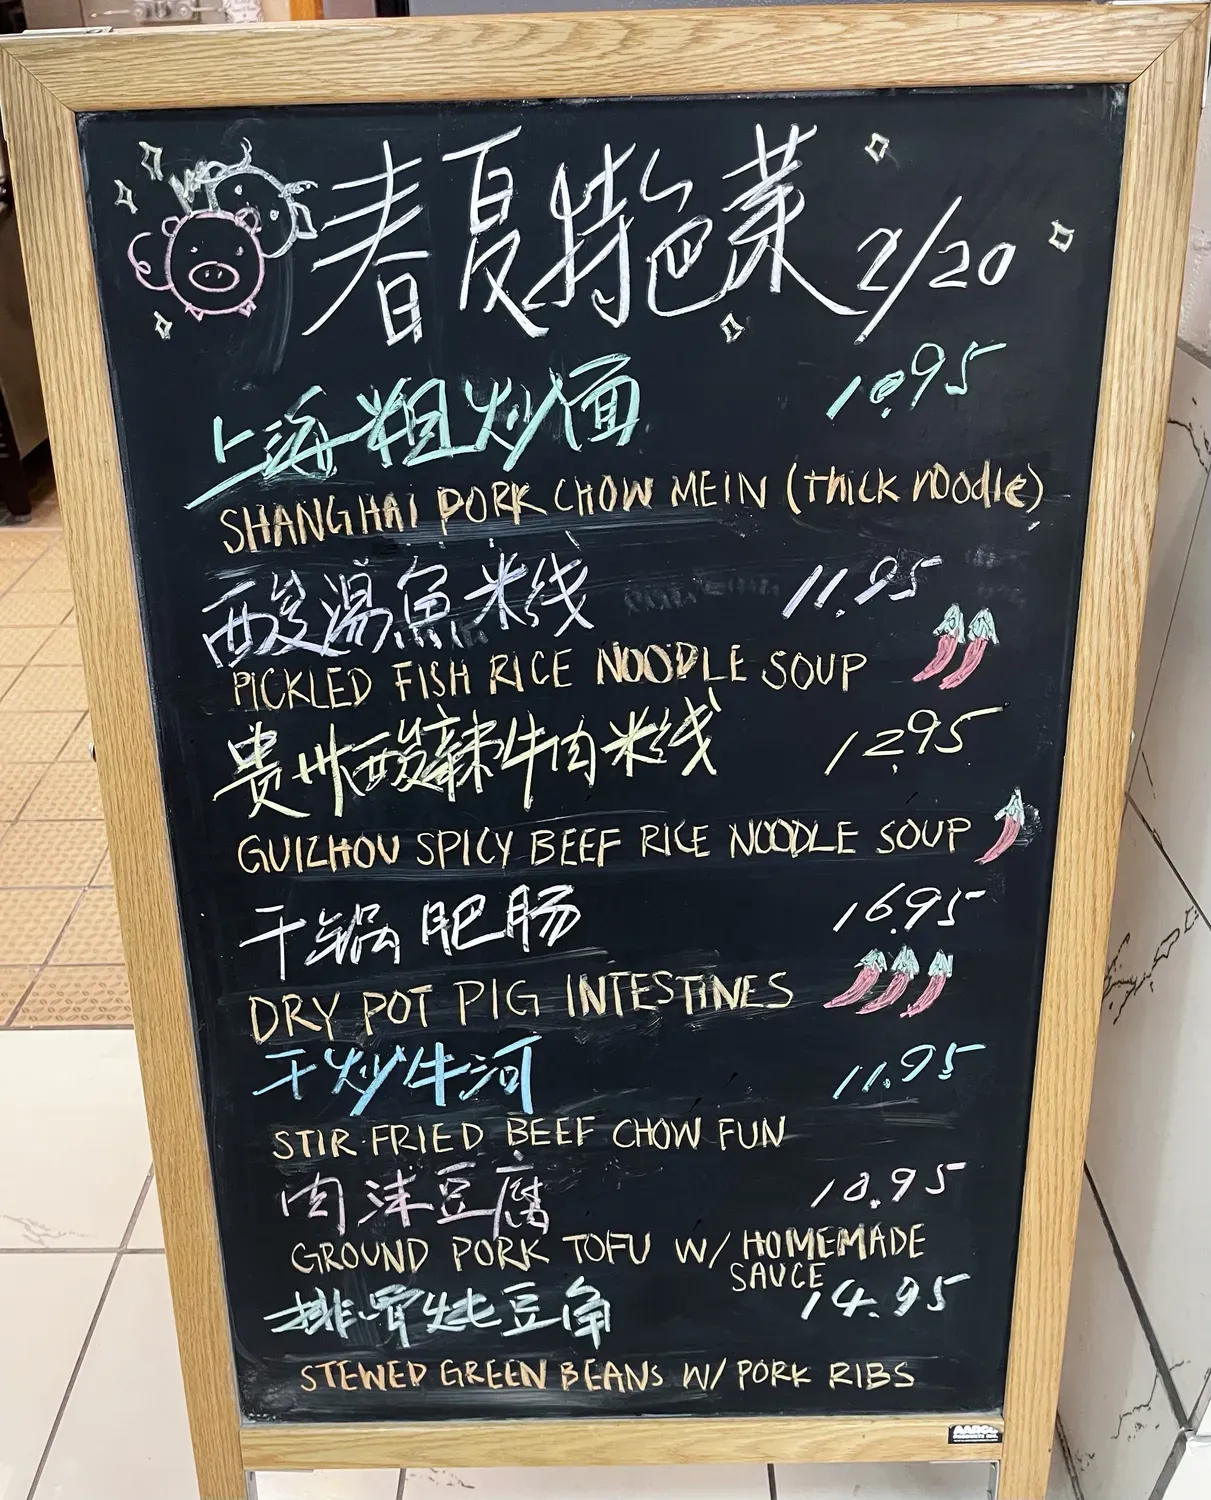 春夏特色菜 2/20
上海粗炒面 10.95
SHANGHAI PORK CHOW MEIN (thick noodle)
酸湯魚米线 11.95
PICKLED FISH RICE NOODLE SOUP
贵州酸辣牛肉米线 12.95
GUIZHOU SPICY BEEF RICE NOODLE SOUP
干锅肥肠 16.95
DRY POT PIG INTESTINES
干炒牛河 11.95
STIR FRIED BEEF CHOW FUN
肉沫豆腐 10.95
GROUND PORK TOFU W/ HOMEMADE
SAUCE
排骨炖豆角 14.95
STEWED GREEN BEANS W/ PORK RIBS